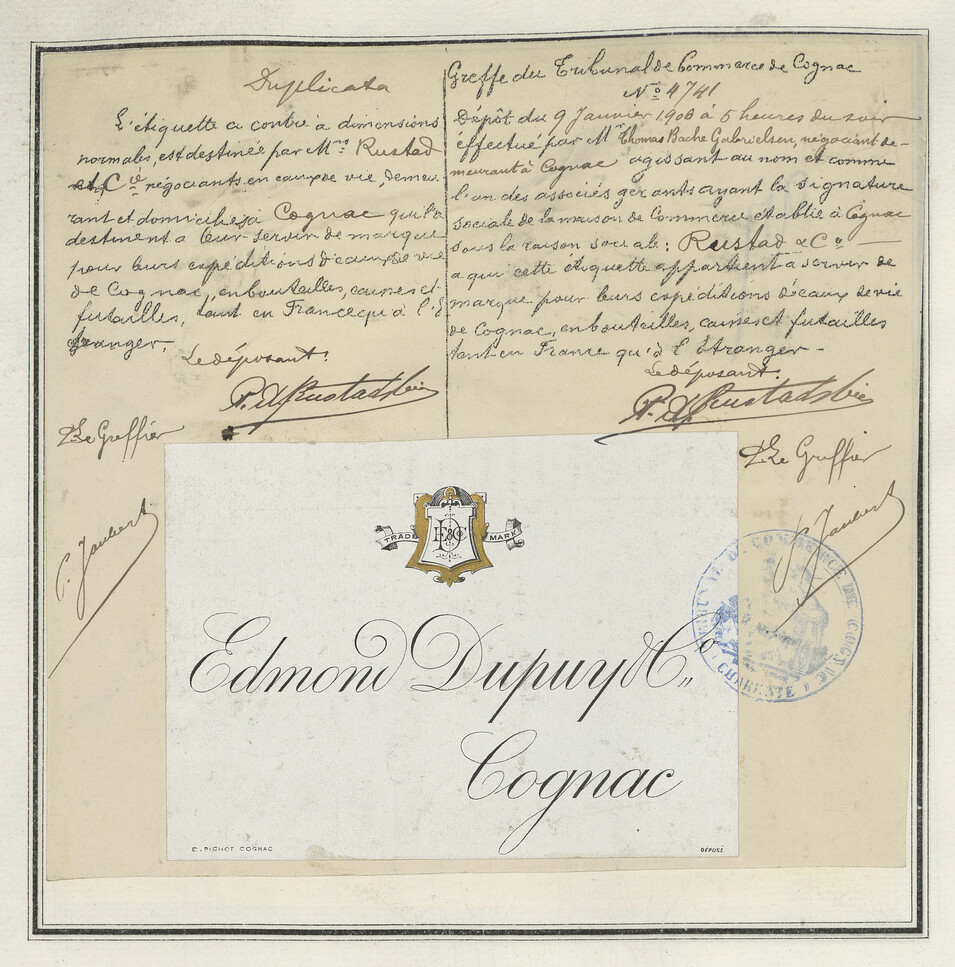 Duplicata
L'étiquette ci contre à dimensions
normales, est destinée par Mrs Rustad
et Cie négociants en eaux de vie, demeu
rant et domiciliés à Cognac qui la
destinent a leur servir de marque
pour leurs expéditions d'eaux de vie
de Cognac, en bouteilles, caisses et
futailles, tant en France qu'à l'É
tranger.
Le déposant.
P. Rustad & Cie
Le Greffier
C. Jaubert
Greffe du Tribunal de Commerce de Cognac
No 4741
Dépôt du 9 Janvier 1906 à 5 heures du soir
effectué par Mr Thomas Bache Gabrielsen, négociant de-
meurant à Cognac agissant au nom et comme
l'un des associés gérants ayant la signature
sociale de la maison de Commerce établie à Cognac
sous la raison sociale: Rustad & Ce —
a qui cette étiquette appartient a servir de
marque pour leurs expéditions d'eaux de vie
de Cognac, en bouteilles, caisses et futailles
tant en France qu'à l'Etranger -
Le déposant.
P. Rustad & Cie
Le Greffier
C. Jaubert
TRADE MARK
ED&Co
Edmond Dupuy & Co,,
Cognac
E. PICHOT COGNAC
DÉPOSÉ.
TRIBUNAL DE COMMERCE DE COGNAC
CHARENTE